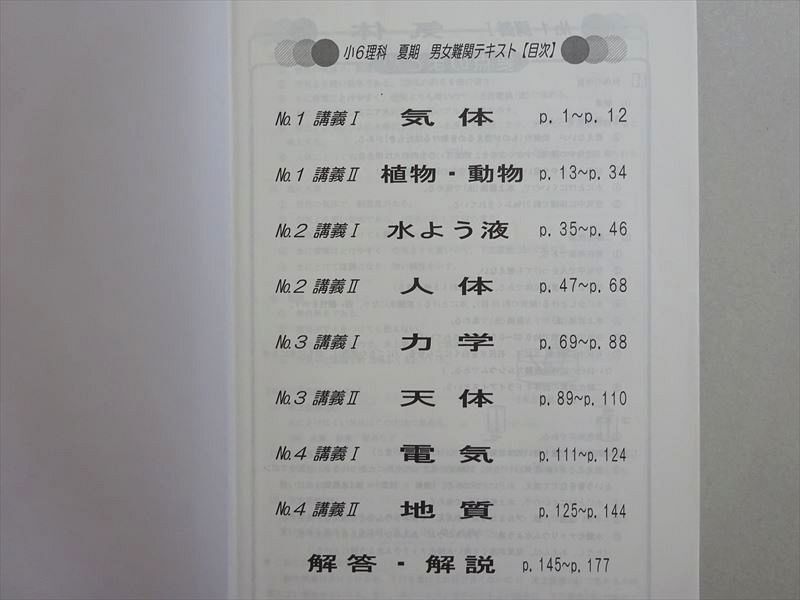 小6理科 夏期 男女難関テキスト【目次】
No.1 講義Ⅰ 気体 p.1~p.12
No.1 講義Ⅱ 植物・動物 p.13~p.34
No.2 講義Ⅰ 水よう液 p.35~p.46
No.2 講義Ⅱ 人体 p.47~p.68
No.3 講義Ⅰ 力学 p.69~p.88
No.3 講義Ⅱ 天体 p.89~p.110
No.4 講義Ⅰ 電気 p.111~p.124
No.4 講義Ⅱ 地質 p.125~p.144
解答・解説 p.145~p.177